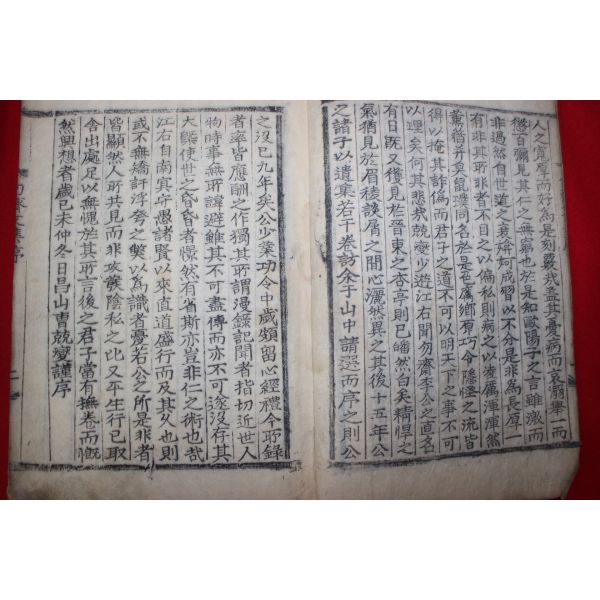 人之寬厚而好為是刻覈我盖其憂病而哀
禮百彌見其仁之無窮也於是知歐陽子之言雖激而
非過然自世道之衰媕婀成習以不分是非為長厚一
有非其所非者不目之以偏私則病之以凌厲渾渾然
薰蕕并矣鼠璞同名於是色厲鄕原巧令隱慝之流皆
得以掩其詐僞而君子之道不可以明天下之事不可
以理矣何其悲哉兢燮少遊江右聞勿齋李公之直名
有日既又獲見於晉東之杏亭則已皤然白矣精悍之
氣猶見於眉稜談屑之間心灑然異之其後十五年公
之諸子以遺集若干卷訪余于山中請選而序之則公
之沒已九年矣公少業功令中歲頗留心經禮今所錄
者率皆應酬之作獨其所謂漫錄記聞者指切近世人
物時事無所諱避雖其不可盡傳而亦不可遂沒存其
大顯使世之昏昏者憬然有省斯亦豈非仁之術也哉
江右自南冥守愚諸賢以來直道盛行而及其久也則
或不無矯訐浮夸之獘以為識者憂若公之所是非者
皆顯然人所共見而非攻發陰私之比又平生行已取
舍出處足以無愧於其所言後之君子當有撫卷而慨
然興想者歲己未仲冬日昌山曺兢燮謹序